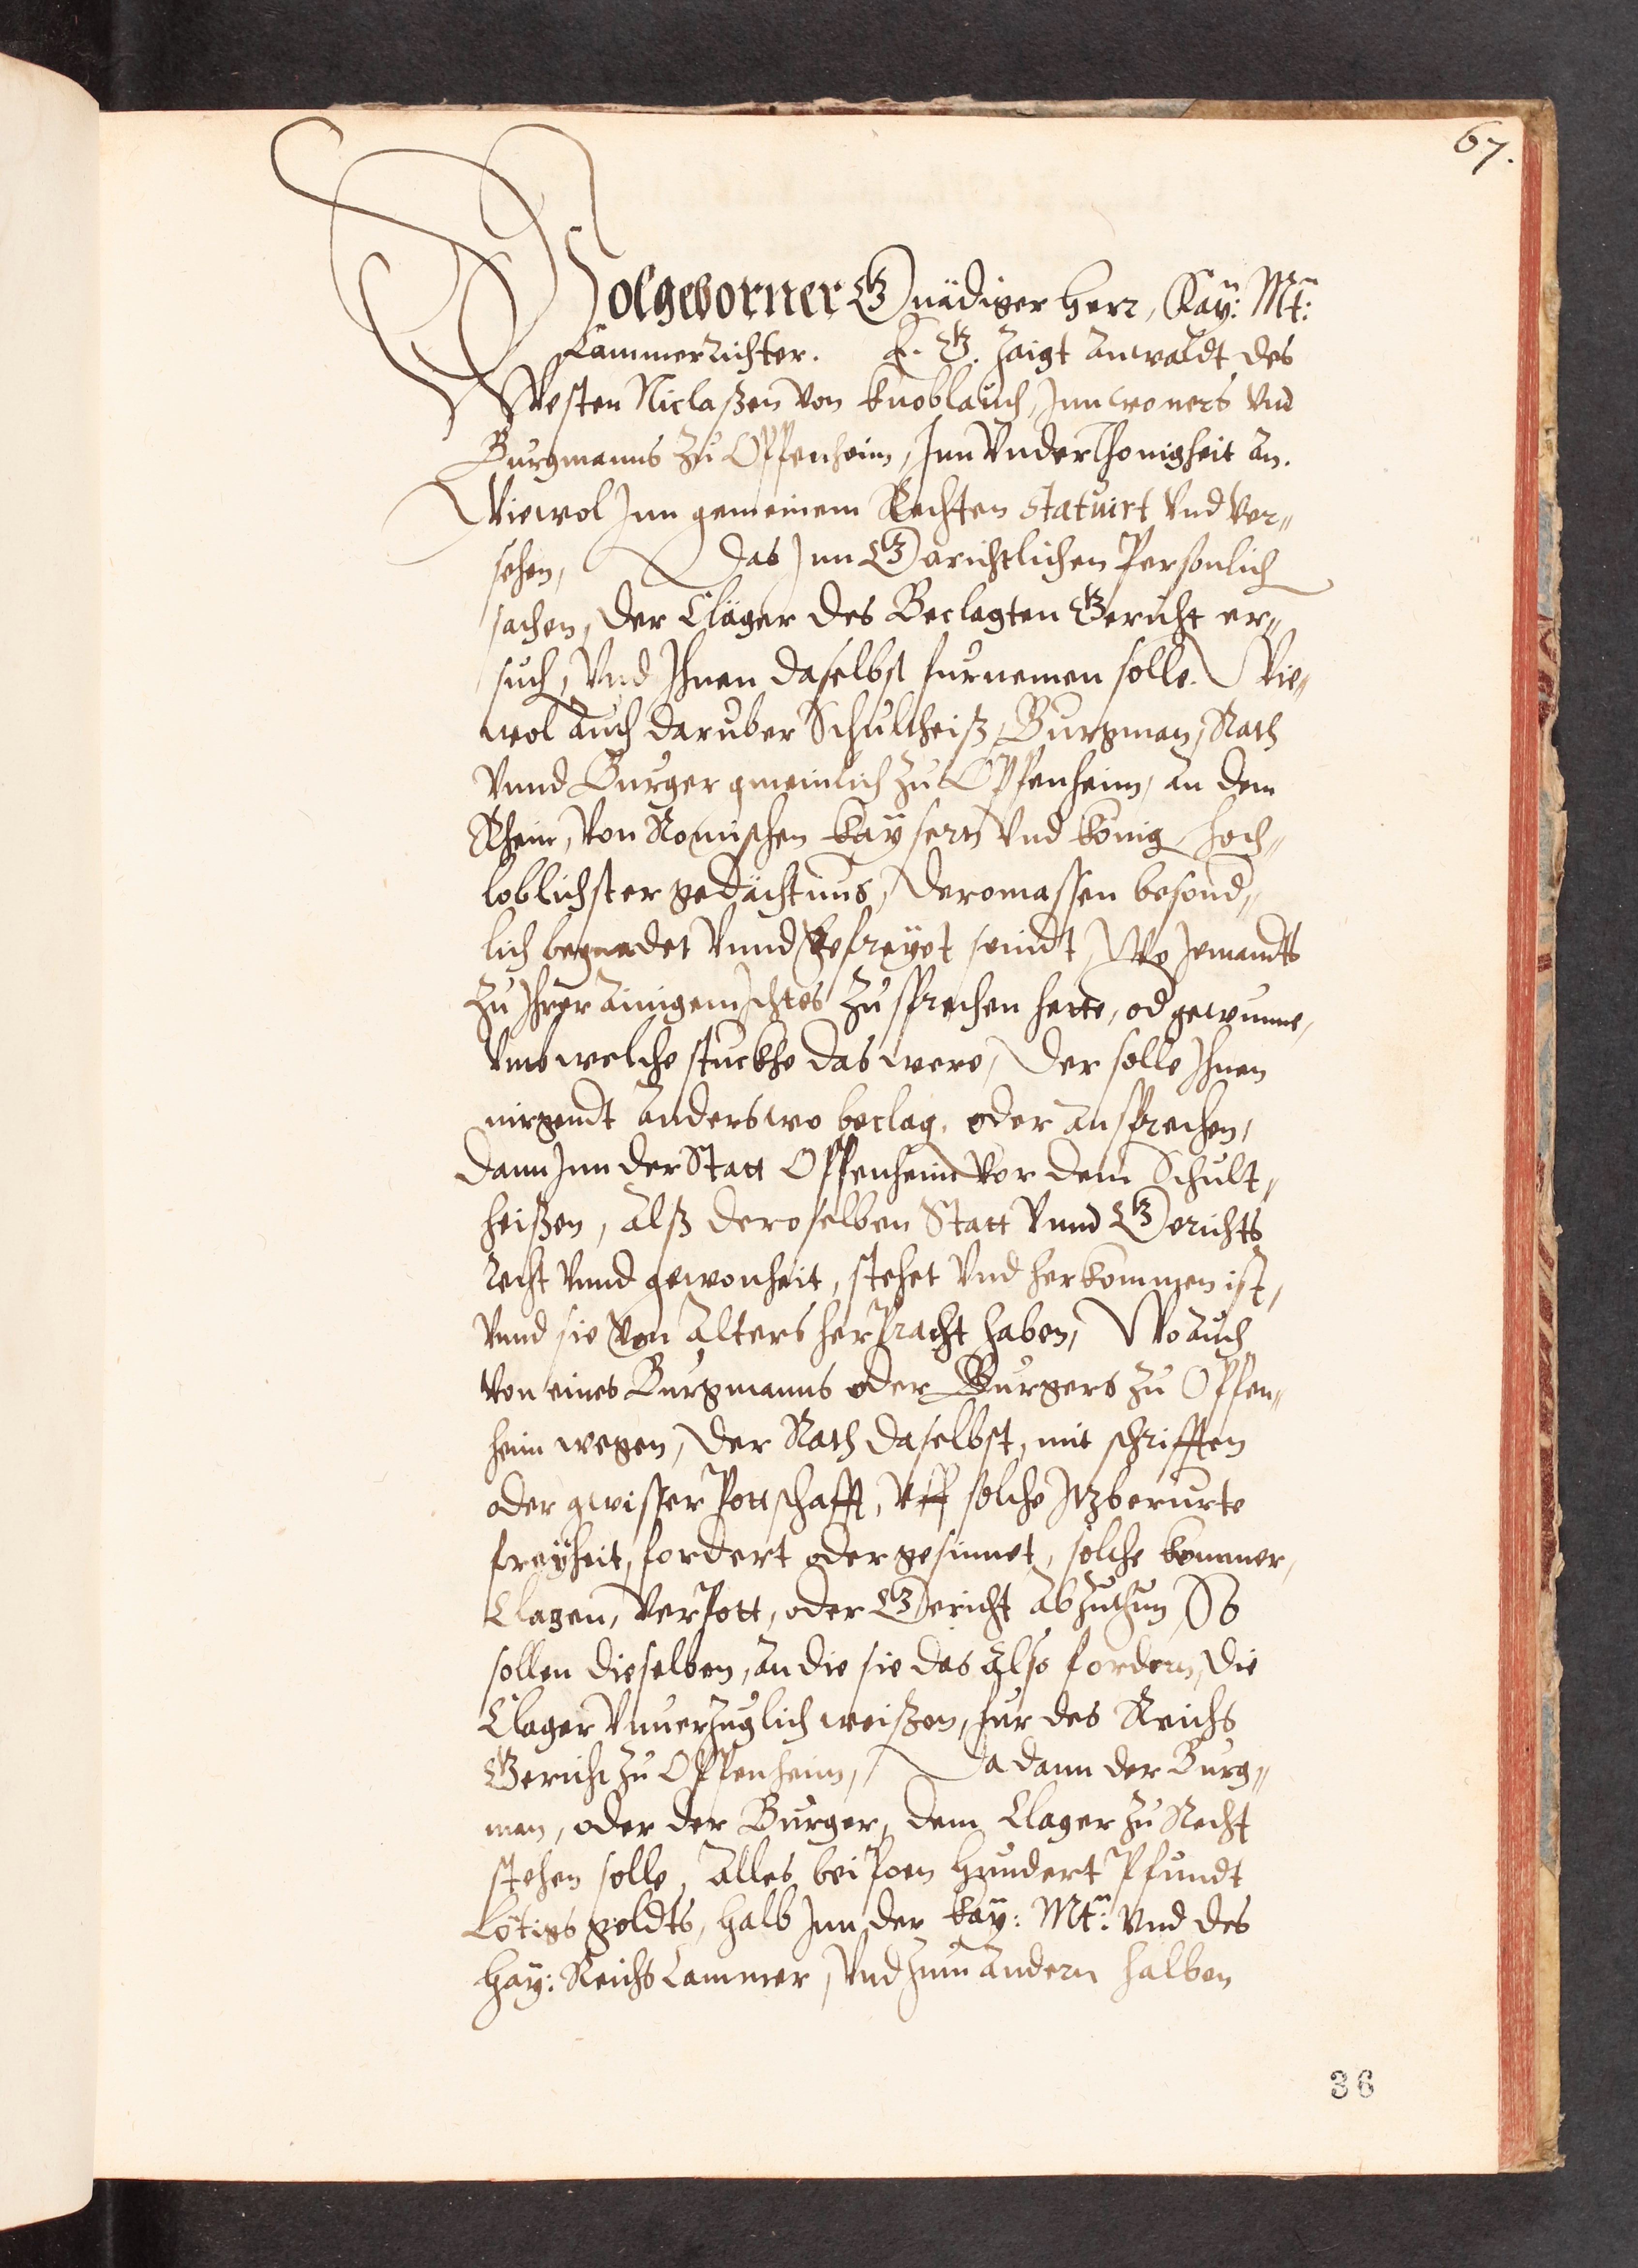 67.
Wolgeborner Gnädiger Herr, Kay: Mt:
Cammerrichter. E. G. zaigt Anwaldt des
Vesten Niclaßen von Knoblauch, Innwoners vnd
Burgmanns zu Oppenheim, Inn Vnderthonigheit an.
Wiewol Inn gemeinem Rechten statuirt vnd ver„
sehen, das Inn Gerichtlichen Persönlich
sachen, der Cläger des Beclagten Gericht er„
such, Vnd Ihnen daselbst furnemen solle. Wie„
wol auch daruber Schultheiß, Burgman, Rath
vnnd Burger gmeinlich zu Oppenheim, an dem
Rhein, von Romischen Kaysern vnd König, hoch„
loblichster gedächtnus, dermassen besond„
lich begnadet vnnd befreyet seindt, Wo Jemandts
zu Ihrer ainigem Ichtes zusprechen hette, od gewunne,
vmb welche stuckhe das were, der solle Ihnen
nirgendt anderswo beclag. oder ansprechen,
dann Inn der Statt Oppenheim vor dem Schult„
heißen, alß deroselben Statt vnnd Gerichts
recht vnnd gewonheit, stehet vnd herkommen ist,
vnnd sie von alters herpracht haben, Wo auch
von eines Burgmanns oder Burgers zu Oppen„
heim wegen, der Rath daselbst, mit schrifften
oder gwisser Pottschafft, vff solche Itzberurte
freyheit, fordert oder gesinnet, solche kommer,
Clagen, verpott, oder Gericht abzuthun, So
sollen dieselben, an die sie das also fordern, die
Clager vnuerzuglich weißen, fur des Reichs
Gericht zu Oppenheim, Da dann der Burg„
man, oder der Burger, dem Clager zu Recht
stehen solle, Alles bei Poen hundert Pfundt
Lötigs goldts, halb Inn der Kay: Mt: vnd des
Hay: Reichs Cammer, Vnd zum andern halben
36